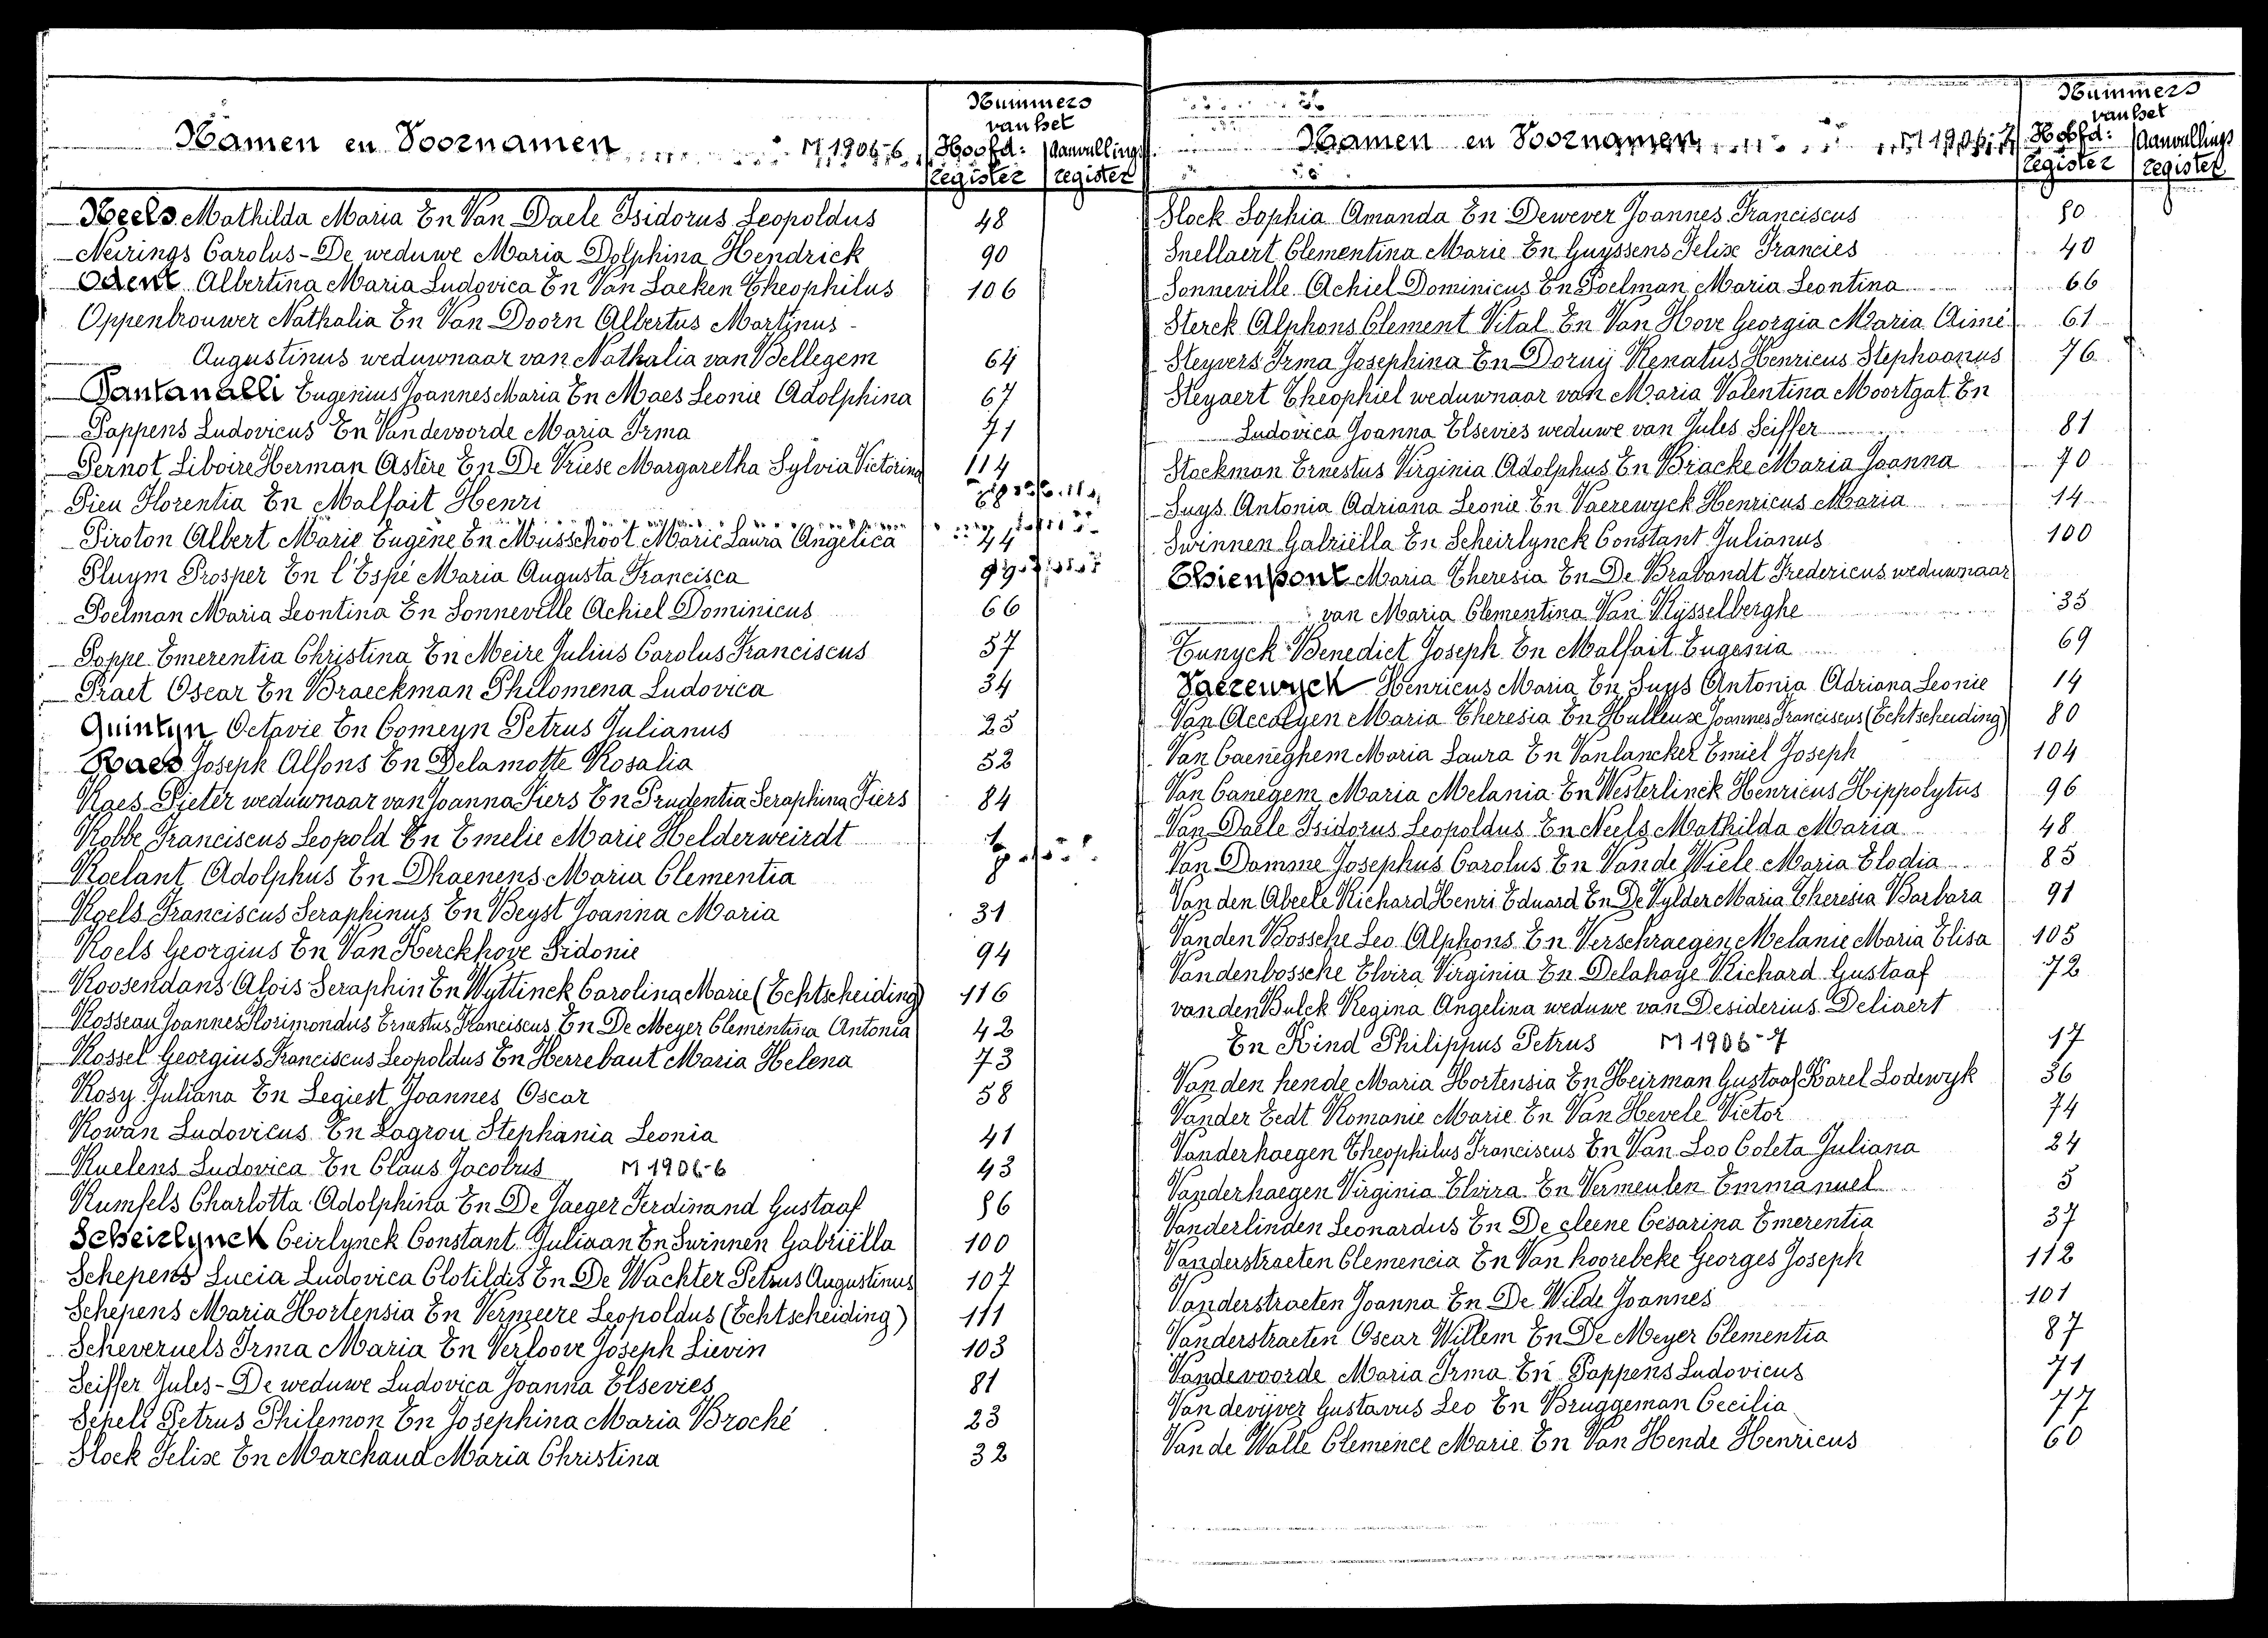 Namen en Voornamen M 1906-6
Nummers
van het
Hoofd: Aanvullings
register register
Neels Mathilda Maria En Van Daele Isidorus Leopoldus 48
Neirings Carolus - De weduwe Maria Dolphina Hendrick 90
Odent Albertina Maria Ludovica En Van Laeken Theophilus 106
Oppenbrouwer Nathalia En Van Doorn Albertus Martinus -
Augustinus weduwnaar van Nathalia van Bellegem 64
Pantanalli Eugenius Joannes Maria En Maes Leonie Adolphina 67
Pappens Ludovicus En Vandevoorde Maria Irma 71
Pernot Liboire Herman Astère En De Vriese Margaretha Sylvia Victorina 114
Pieu Florentia En Malfait Henri
Piroton Albert Marie Eugène En Musschoot Marie Laura Angelica 44
Pluym Prosper En l'Espé Maria Augusta Francisca
Poelman Maria Leontina En Sonneville Achiel Dominicus 66
Poppe Emerentia Christina En Meire Julius Carolus Franciscus 57
Praet Oscar En Braeckman Philomena Ludovica 34
Quintyn Octavie En Comeyn Petrus Julianus 25
Raes Joseph Alfons En Delamotte Rosalia 52
Raes Pieter weduwnaar van Joanna Fiers En Prudentia Seraphina Fiers 84
Robbe Franciscus Leopold En Emelie Marie Helderweirdt 1
Roelant Adolphus En Dhaenens Maria Clementia 8
Roels Franciscus Seraphinus En Beyst Joanna Maria 31
Roels Georgius En Van Kerckhove Sidonie 94
Roosendans Alois Seraphin En Wyttinck Carolina Marie (Echtscheiding) 116
Rosseau Joannes Florimondus Ernestus Franciscus En De Meyer Clementina Antonia 42
Rossel Georgius Franciscus Leopoldus En Herrebaut Maria Helena 73
Rosy Juliana En Legiest Joannes Oscar 58
Rowan Ludovicus En Lagrou Stephania Leonia 41
Ruelens Ludovica En Claus Jacobus M 1906-6 43
Rumfels Charlotta Adolphina En De Jaeger Ferdinand Gustaaf 86
Scheirlynck Ceirlynck Constant Juliaan En Swinnen Gabriëlla 100
Schepens Lucia Ludovica Clotildis En De Wachter Petrus Augustinus 107
Schepens Maria Hortensia En Vermeere Leopoldus (Echtscheiding) 111
Scheveruels Irma Maria En Verloove Joseph Lievin 103
Seiffer Jules - De weduwe Ludovica Joanna Elsevies 81
Sepeli Petrus Philemon En Josephina Maria Broché 23
Slock Felix En Marchand Maria Christina 32
Namen en Voornamen M 1906-7
Nummers
van het
Hoofd: Aanvullings
register register
Slock Sophia Amanda En Dewever Joannes Franciscus 50
Snellaert Clementina Marie En Guyssens Felix Francies 40
Sonneville Achiel Dominicus En Poelman Maria Leontina 66
Sterck Alphons Clement Vital En Van Hove Georgia Maria Aimé 61
Steyvers Irma Josephina En Dorny Renatus Henricus Stephaanus 76
Steyaert Theophiel weduwnaar van Maria Valentina Moortgat En
Ludovica Joanna Elsevies weduwe van Jules Seiffer 81
Stockman Ernestus Virginia Adolphus En Bracke Maria Joanna 70
Suys Antonia Adriana Leonie En Vaerewyck Henricus Maria 14
Swinnen Gabriëlla En Scheirlynck Constant Julianus 100
Thienpont Maria Theresia En De Brabandt Fredericus weduwnaar
van Maria Clementina Van Rysselberghe 35
Tunyck Benedict Joseph En Malfait Eugenia 69
Vaerewyck Henricus Maria En Suys Antonia Adriana Leonie 14
Van Accolyen Maria Theresia En Hulleux Joannes Franciscus (Echtscheiding) 80
Van Caeneghem Maria Laura En Vanlancker Emiel Joseph 104
Van Canegem Maria Melania En Westerlinck Henricus Hippolytus 96
Van Daele Isidorus Leopoldus En Neels Mathilda Maria 48
Van Damme Josephus Carolus En Van de Wiele Maria Elodia 85
Van den Abeele Richard Henri Eduard En De Vylder Maria Theresia Barbara 91
Vanden Bossche Leo Alphons En Verschraegen Melanie Maria Elisa 105
Vandenbossche Elvira Virginia En Delahaye Richard Gustaaf 72
van den Bulck Regina Angelina weduwe van Desiderius Deliaert
En Kind Philippus Petrus M 1906-7 17
Van den hende Maria Hortensia En Heirman Gustaaf Karel Lodewyk 36
Vander Eedt Romanie Marie En Van Hevele Victor 74
Vanderhaegen Theophilus Franciscus En Van Loo Coleta Juliana 24
Vanderhaegen Virginia Elvira En Vermeulen Emmanuel 5
Vanderlinden Leonardus En De cleene Césarina Emerentia 37
Vanderstraeten Clemencia En Van hoorebeke Georges Joseph 112
Vanderstraeten Joanna En De Wilde Joannes 101
Vanderstraeten Oscar Willem En De Meyer Clementia 87
Vandevoorde Maria Irma En Pappens Ludovicus 71
Van devijver Gustavus Leo En Bruggeman Cecilia 77
Van de Walle Clemence Marie En Van Hende Henricus 60